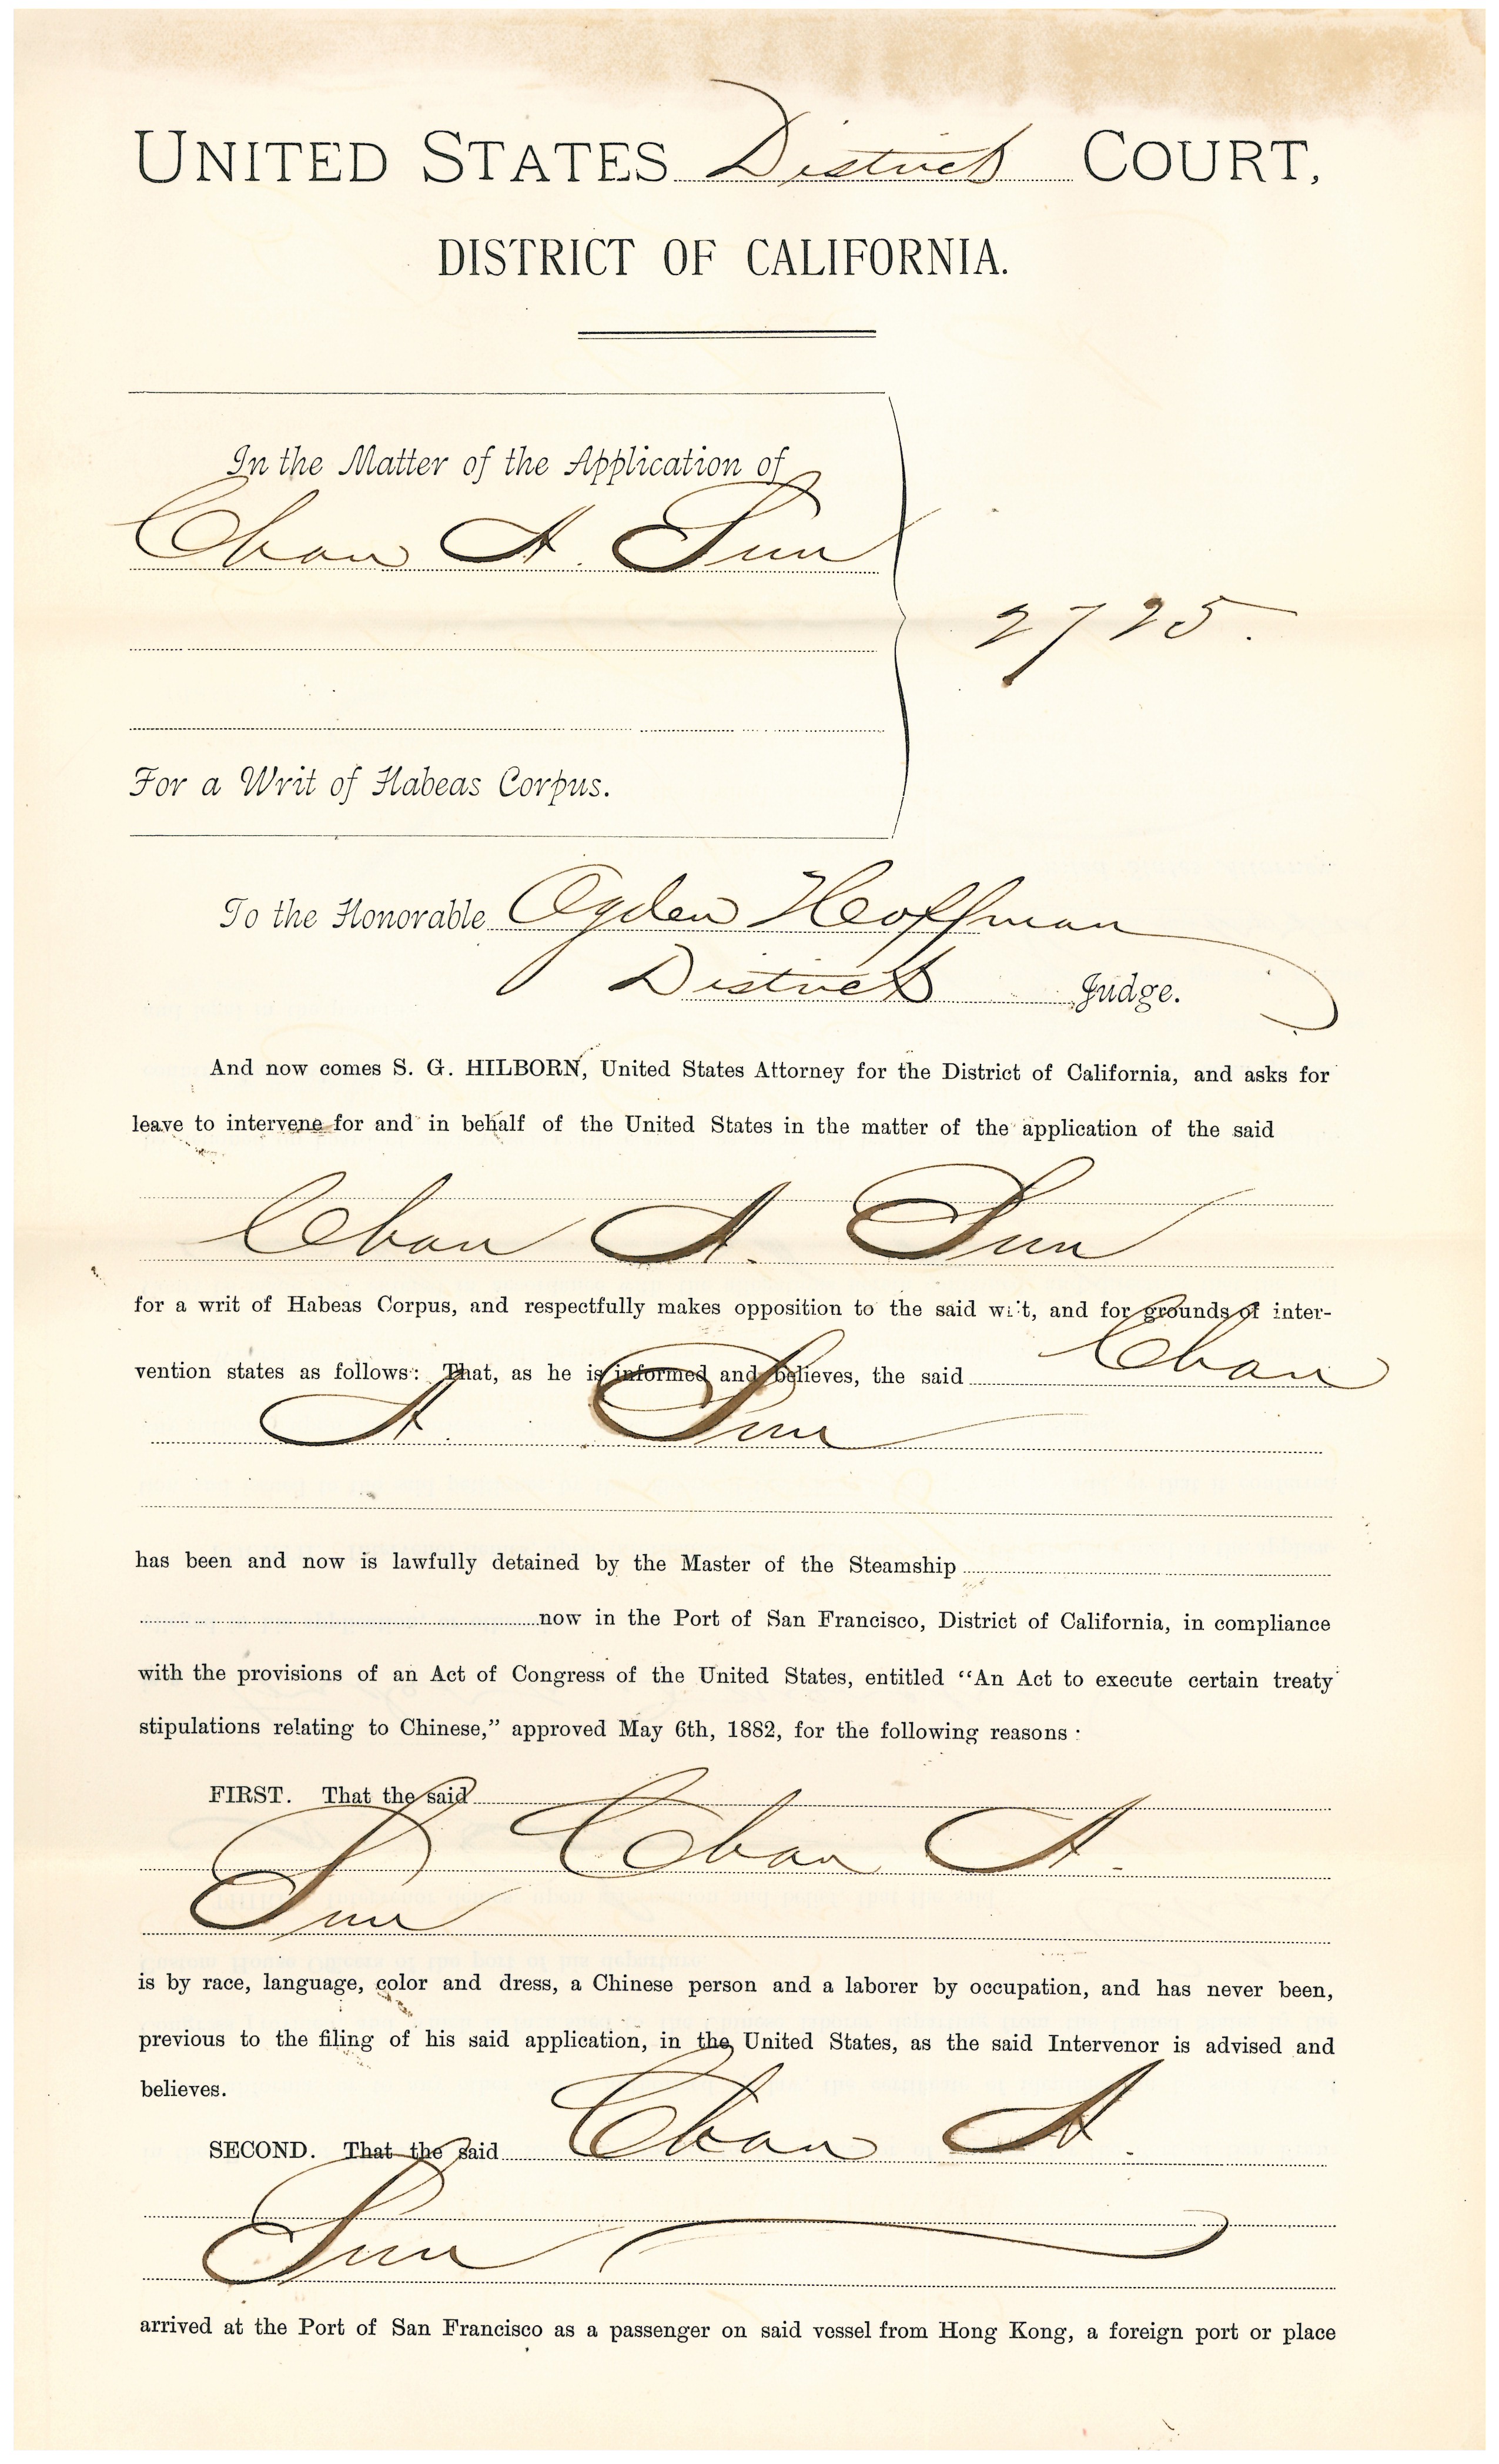 UNITED STATES District COURT,
DISTRICT OF CALIFORNIA.
In the Matter of the Application of
Chan A. Sun
2725.
For a Writ of Habeas Corpus.
To the Honorable Ogden Hoffman
District Judge.
And now comes S. G. HILBORN, United States Attorney for the District of California, and asks for
leave to intervene for and in behalf of the United States in the matter of the application of the said
Chan A. Sun
for a writ of Habeas Corpus, and respectfully makes opposition to the said writ, and for grounds of inter-
vention states as follows: That, as he is informed and believes, the said Chan
A. Sun
has been and now is lawfully detained by the Master of the Steamship
now in the Port of San Francisco, District of California, in compliance
with the provisions of an Act of Congress of the United States, entitled “An Act to execute certain treaty
stipulations relating to Chinese,” approved May 6th, 1882, for the following reasons :
FIRST. That the said
Chan A.
Sun
is by race, language, color and dress, a Chinese person and a laborer by occupation, and has never been,
previous to the filing of his said application, in the United States, as the said Intervenor is advised and
believes.
SECOND. That the said Chan A.
Sun
arrived at the Port of San Francisco as a passenger on said vessel from Hong Kong, a foreign port or place